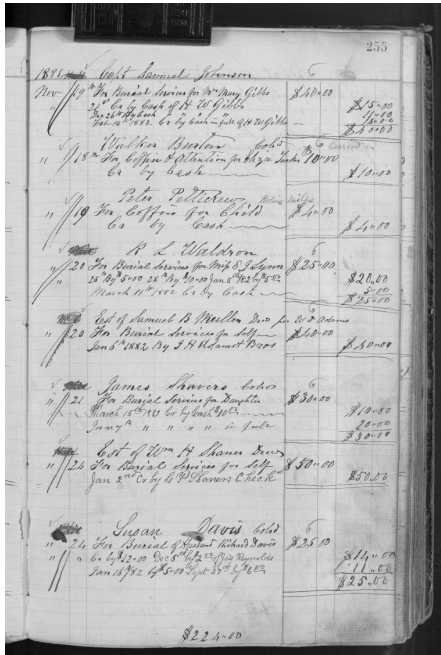 255
1881 Capt Samuel Johnson
Nov 19th For Burial Services for Mrs Mary Gibbs $40.00
26th Cr by Cash of H W Gibbs $15.00
Dec 26th By Cash
Feb 14th 1882 Cr by Cash in full of H W Gibbs
$40.00
Walker Burton Cold
" 18th For Coffin & Attention for Eliza $10.00
Cr by Cash $10.00
Peter Petticrew
" 19 For Coffin for Child $4.00
Cr by Cash $4.00
R L Waldron
" 20 For Burial Services for Miss E J Lynn $25.00
25th By 5.00 28th By 10.00 Jan 6th 82 by 5.00 $20.00
March 11th 1882 Cr By Cash 5.00
$25.00
Est of Samuel B Mullen Decd per W D Adams
" 20 For Burial Services for Self $40.00
Jan 6th 1882 By J H Adams & Bros $40.00
James Shavers Colrd
" 21 For Burial Services for Daughter $30.00
March 15th Cr by Cash $10.00
Jany " " " " in full 20.00
$30.00
Est of Wm H Shaver Decd
" 24 For Burial Services for Self $50.00
Jan 2nd Cr by C P Shavers Check $50.00
Susan Davis Cold
" 24 For Burial of Husband Richard Davis $25.00
" " Cr by $12.00 Dec 5th by 2.00 Reynolds $14.00
Jan 15th 82 by $5.00 Sept 27th by 6.00 11.00
$25.00
$224.00